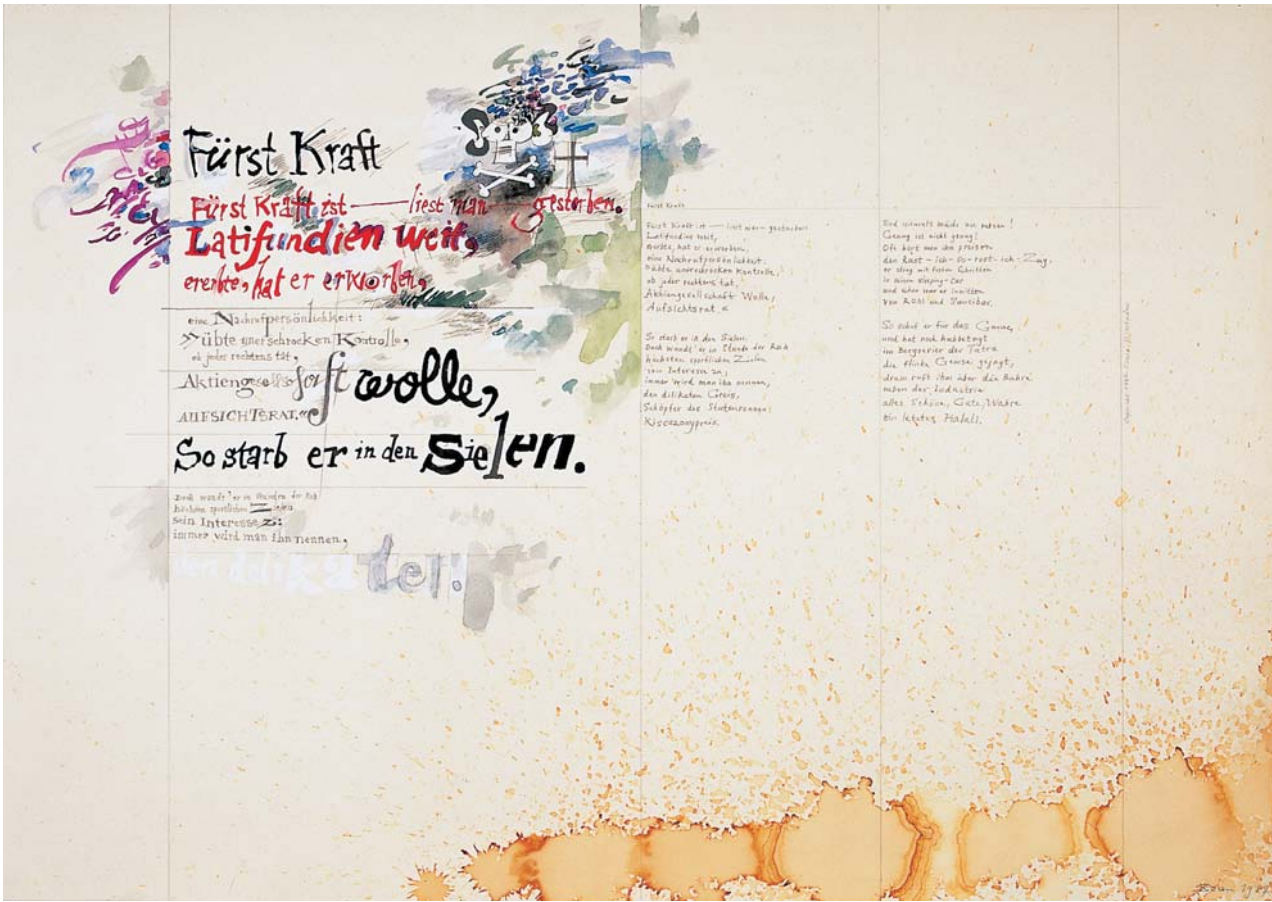 Fürst Kraft
Fürst Kraft ist — liest man — gestorben.
Latifundien weit,
ererbte, hat er erworben,
eine Nachrufpersönlichkeit:
»übte unerschrocken Kontrolle,
ob jeder rechtens tät,
Aktiengesellschaft wolle,
AUFSICHTSRAT.«
So starb er in den Sielen.
Doch wandt' er in Stunden der Rast
höchsten sportlichen Zielen
sein Interesse zu:
immer wird man ihn nennen,
den delikaten!
Fürst Kraft
Fürst Kraft ist — liest man — gestorben
Latifundien weit,
ererbte, hat er erworben,
eine Nachrufpersönlichkeit:
übte unerschrocken Kontrolle,
ob jeder rechtens tat,
Aktiengesellschaft Wolle,
Aufsichtsrat.«
So starb er in den Sielen.
Doch wandt' er in Stunde der Rast
höchsten sportlichen Zielen
sein Interesse zu;
immer wird man ihn nennen,
den delikaten Greis,
Schöpfer des Stutenrennen:
Kiscazonypreis.
Und niemals müde zu reisen!
Genug ist nicht genug!
Oft hört man ihn preisen
den Rast-ich-so-rost-ich-Zug,
er stieg mit festen Schritten
in seinen sleeping-car
und schon war er inmitten
von Rom und Sansibar.
So schuf er für das Ganze
und hat noch hochbetagt
im Bergrevier der Tatra
die flinke Gemse gejagt,
drum ruft ihm über die Bahre
neben der Industrie
alles Schöne, Gute, Wahre
ein letztes Halali.
1989